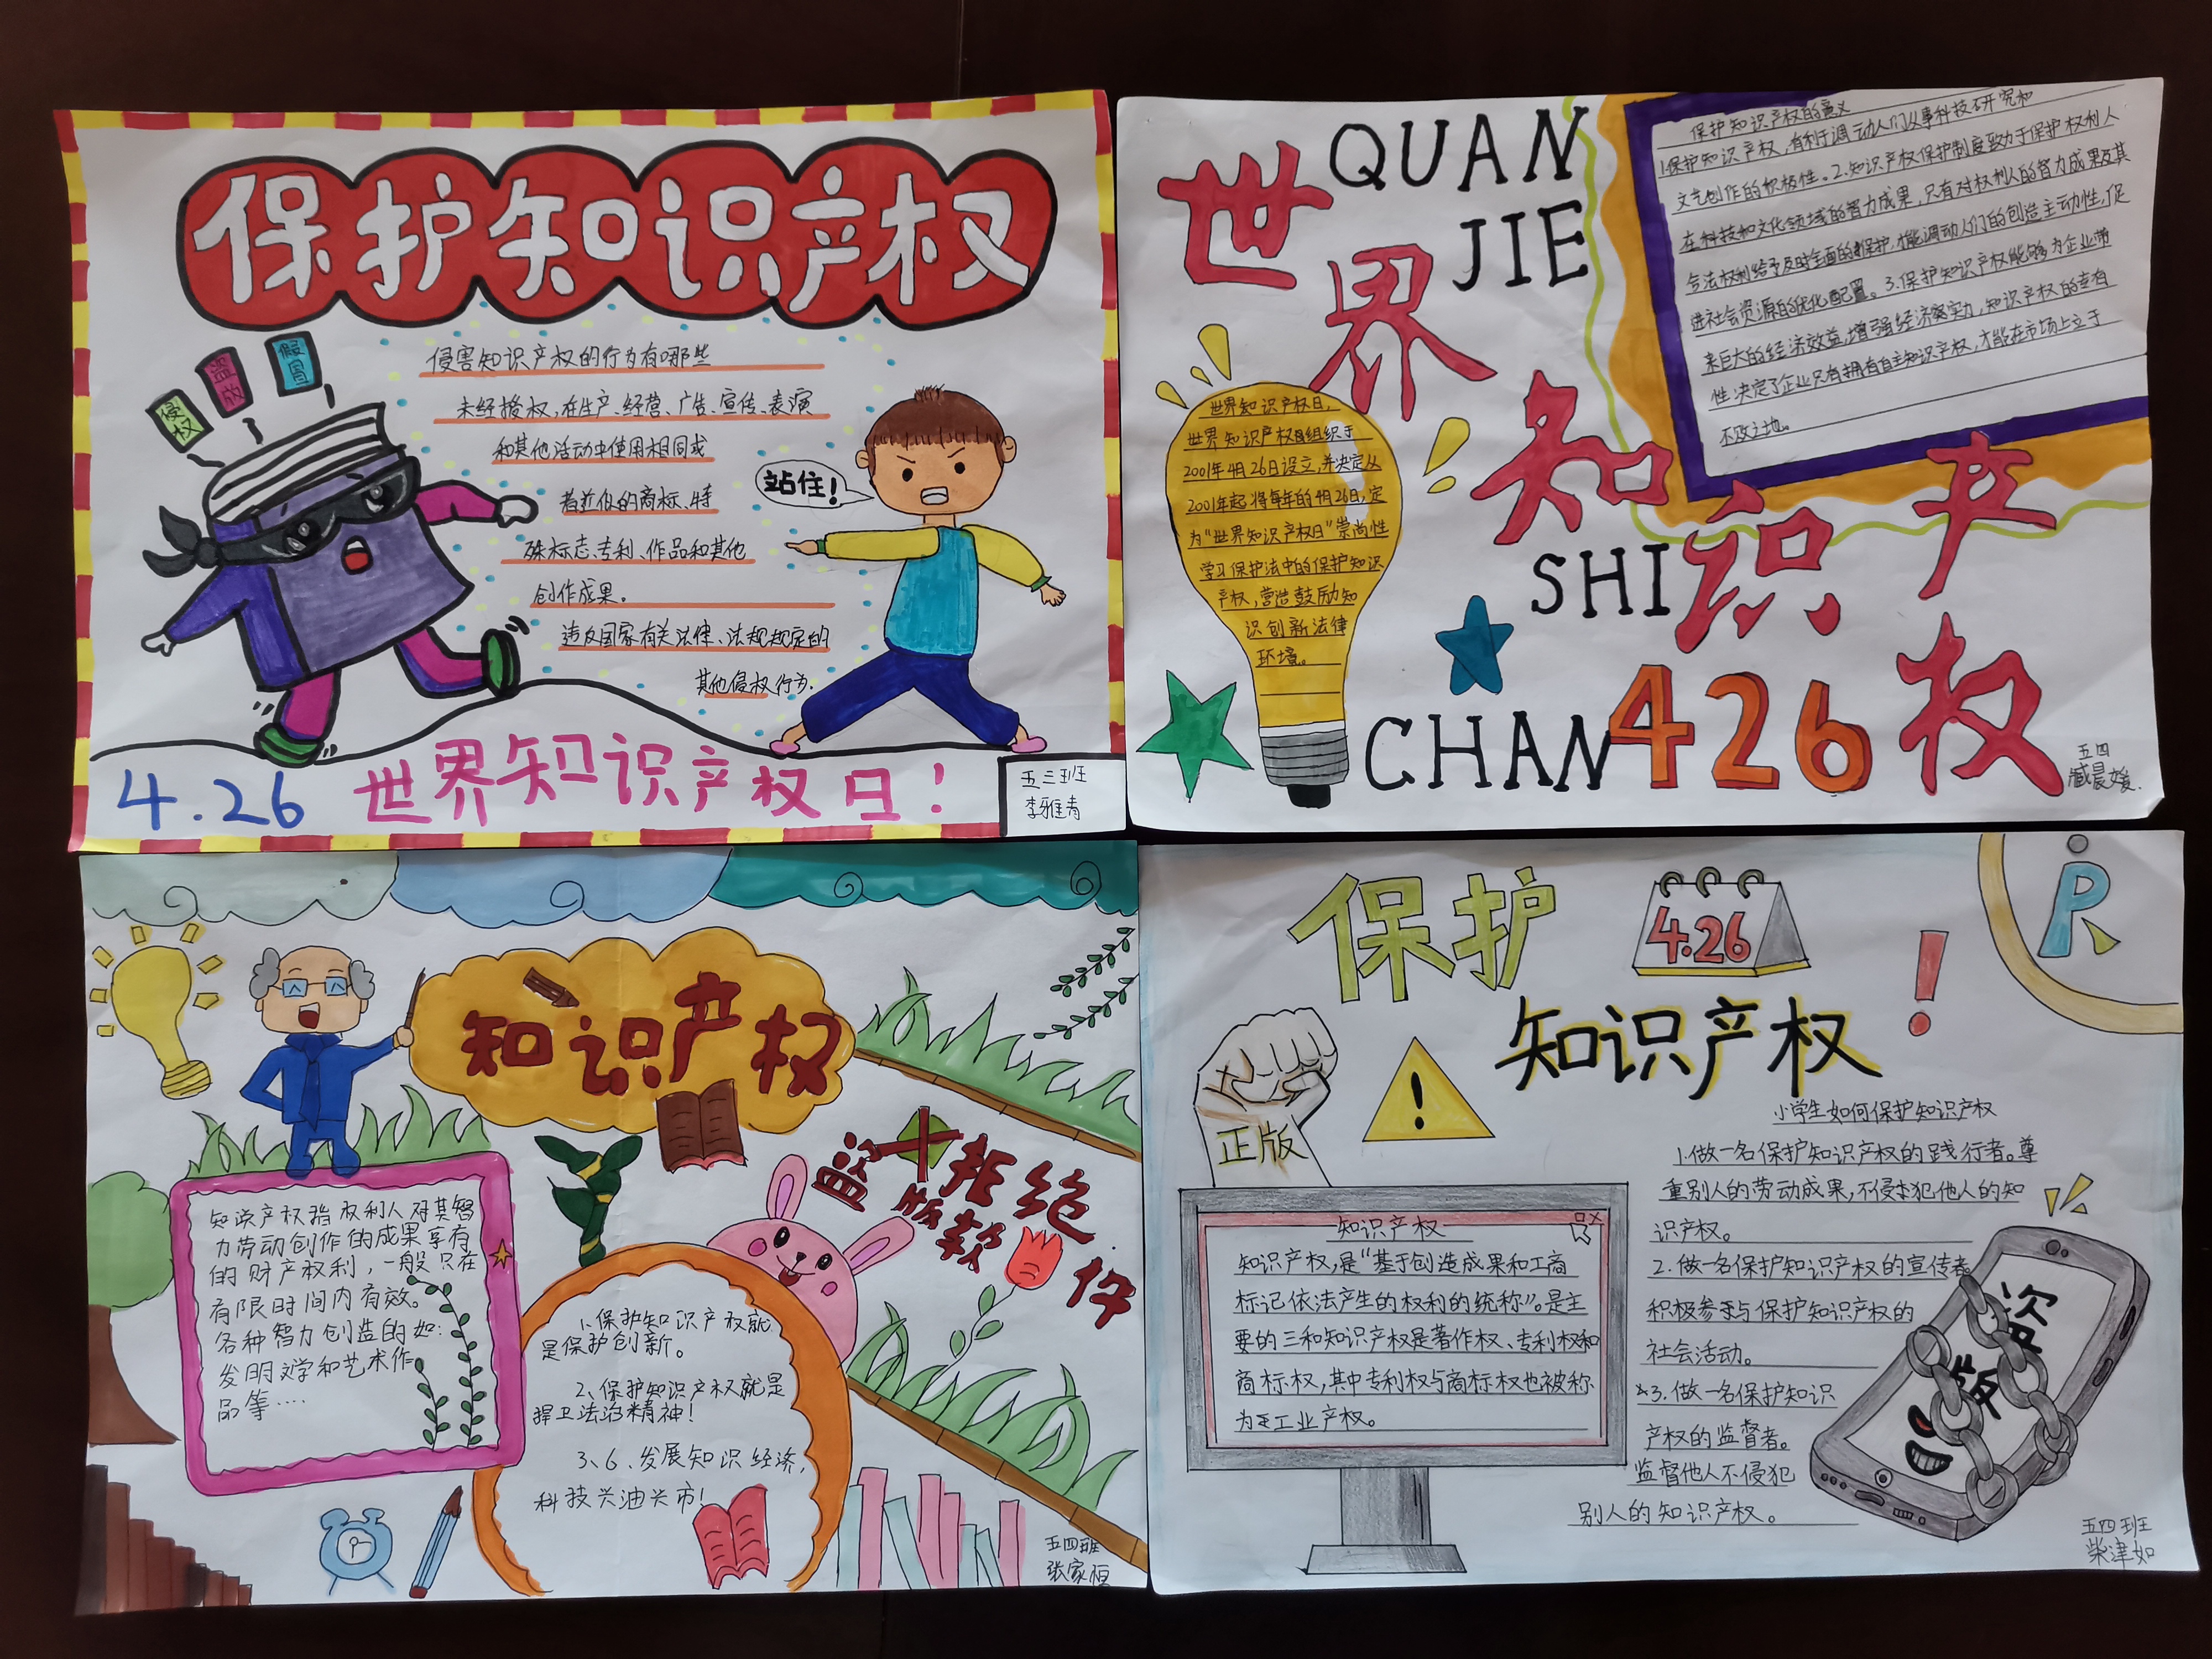 保护知识产权
侵权
盗版
假冒
侵害知识产权的行为有哪些
未经授权,在生产、经营、广告、宣传、表演
和其他活动中使用相同或
者近似的商标、特
殊标志、专利、作品和其他
创作成果。
违反国家有关法律、法规规定的
其他侵权行为.
站住!
4.26 世界知识产权日!
五三班
李雅青
QUAN
JIE
SHI
CHAN
世界知识产权
426
保护知识产权的意义
1.保护知识产权,有利于调动人们从事科技研究和
文艺创作的积极性。2.知识产权保护制度致力于保护权利人
在科技和文化领域的智力成果,只有对权利人的智力成果及其
合法权利给予及时全面的保护,才能调动人们的创造主动性,促
进社会资源的优化配置。3.保护知识产权能够为企业带
来巨大的经济效益,增强经济实力,知识产权的专有
性决定了企业只有拥有自主知识产权,才能在市场上立于
不败之地。
世界知识产权日,
世界知识产权组织于
2001年4月26日设立,并决定从
2001年起将每年的4月26日,定
为“世界知识产权日”崇尚性
学习保护法中的保护知识
产权,营造鼓励知
识创新法律
环境。
五四
臧晨媛.
知识产权
盗版 拒绝
软件
知识产权指权利人对其智
力劳动创作的成果享有
的财产权利,一般只在
有限时间内有效。
各种智力创造的如:
发明文学和艺术作
品等....
1、保护知识产权就
是保护创新。
2、保护知识产权就是
捍卫法治精神!
3、6、发展知识经济,
科技兴油兴市!
五四班
张家恒
保护
4.26
知识产权
!
P
正版
!
知识产权
知识产权,是“基于创造成果和工商
标记依法产生的权利的统称”。是主
要的三和知识产权是著作权、专利权和
商标权,其中专利权与商标权也被称
为工业产权。
小学生如何保护知识产权
1.做一名保护知识产权的践行者。尊
重别人的劳动成果,不侵犯他人的知
识产权。
2.做一名保护知识产权的宣传者
积极参与保护知识产权的
社会活动。
3.做一名保护知识
产权的监督者。
监督他人不侵犯
别人的知识产权。
盗版
五四班
柴津如